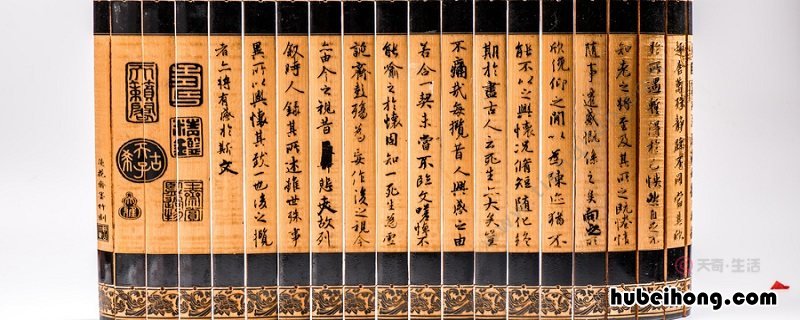 趣舍萬殊靜躁不同當其欣
於所遇暫得於己快然自足不
知老之將至及其所之既惓情
隨事遷感慨係之矣向之所
欣俛仰之閒以爲陳迹猶不
能不以之興懷況脩短隨化終
期於盡古人云死生亦大矣豈
不痛哉每攬昔人興感之由
若合一契未嘗不臨文嗟悼不
能喻之於懷固知一死生爲虛
誕齊彭殤爲妄作後之視今
亦由今之視昔悲夫故列
敘時人錄其所述雖世殊事
異所以興懷其致一也後之攬
者亦將有感於斯文
天奇·生活
hubeihong.com